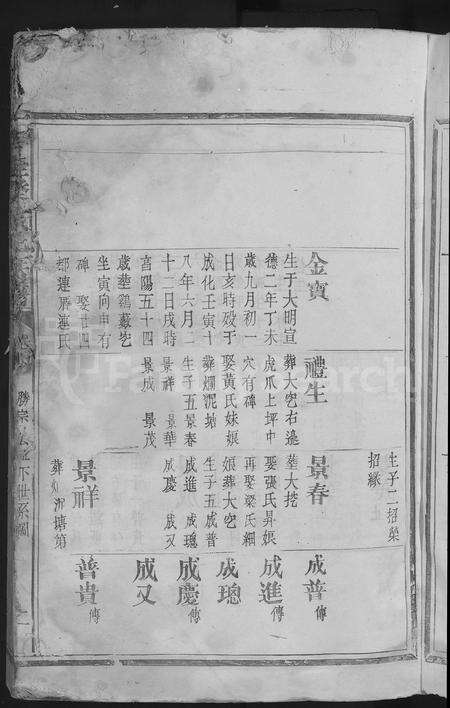 生子二招榮
招緣
金寶
生于大明宣
德二年丁未
歲九月初一
日亥時歿于
成化壬寅十
八年六月二
十二日戌時
享陽五十四
歲葬鷄藪岃
坐寅向申有
碑 娶廿四
都連厝連氏
禮生
葬大岃右邊
虎爪上坪中
穴有碑
娶黃氏妹娘
葬爛泥塘
生子五景春
景祥 景華
景成 景茂
景春
葬大挖
娶張氏昇娘
再娶梁氏細
娘葬大岃
生子五成普
成進 成璁
成慶 成又
景祥
葬爛泥塘第
成普傳
成進傳
成璁
成慶傳
成又
普貴傳
勝宗公位下世系圖